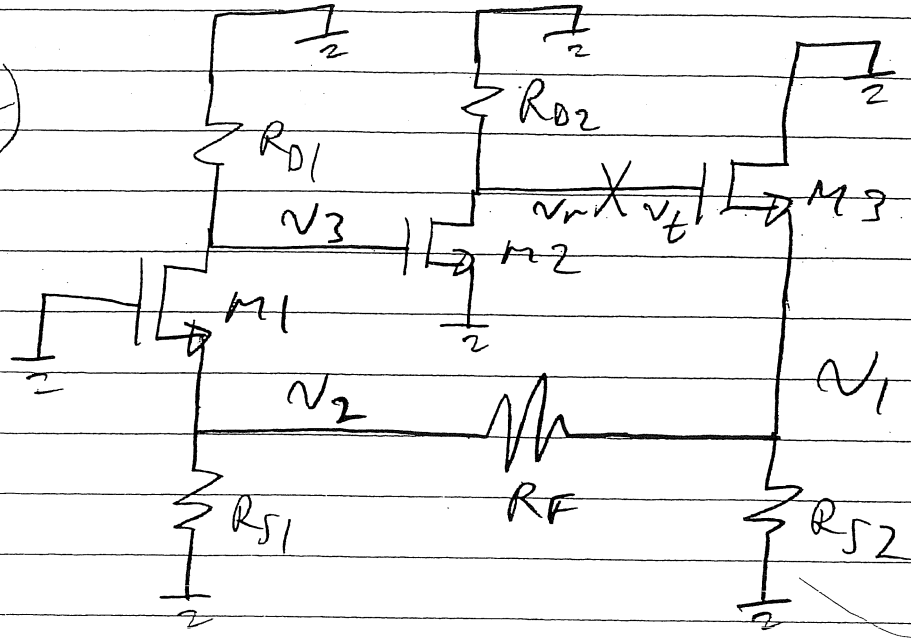 R_D1
R_D2
v_3
v_r
v_t
M3
M2
M1
v_2
v_1
R_F
R_S1
R_S2